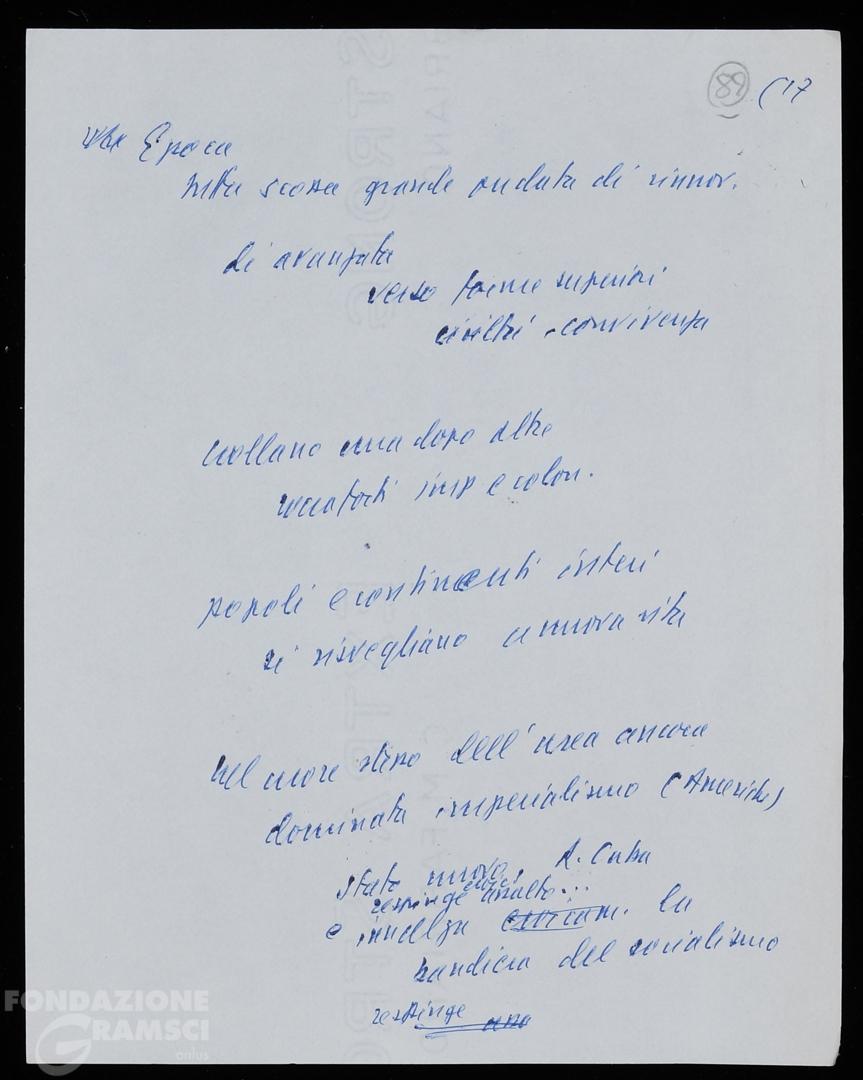 89 (17
Epoca
tutta scossa grande ondata di rinnov.
di avanzata
verso forme superiori
civiltà e convivenza
crollano una dopo altre
roccaforti imp e colon.
popoli e continenti interi
si risvegliano a nuova vita
nel cuore stesso dell'area ancora
dominata imperialismo (Americhe)
stato nuovo, R. Cuba
respinge assalto...
e innalza la
bandiera del socialismo
respinge una
FONDAZIONE
GRAMSCI
onlus